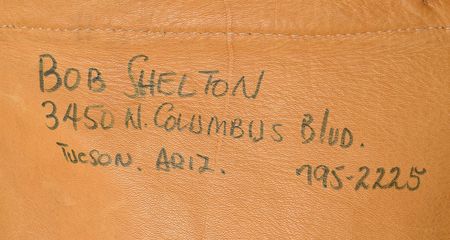 BOB SHELTON
3450 N. COLUMBUS BlUD.
TUCSON. ARIZ. 795-2225